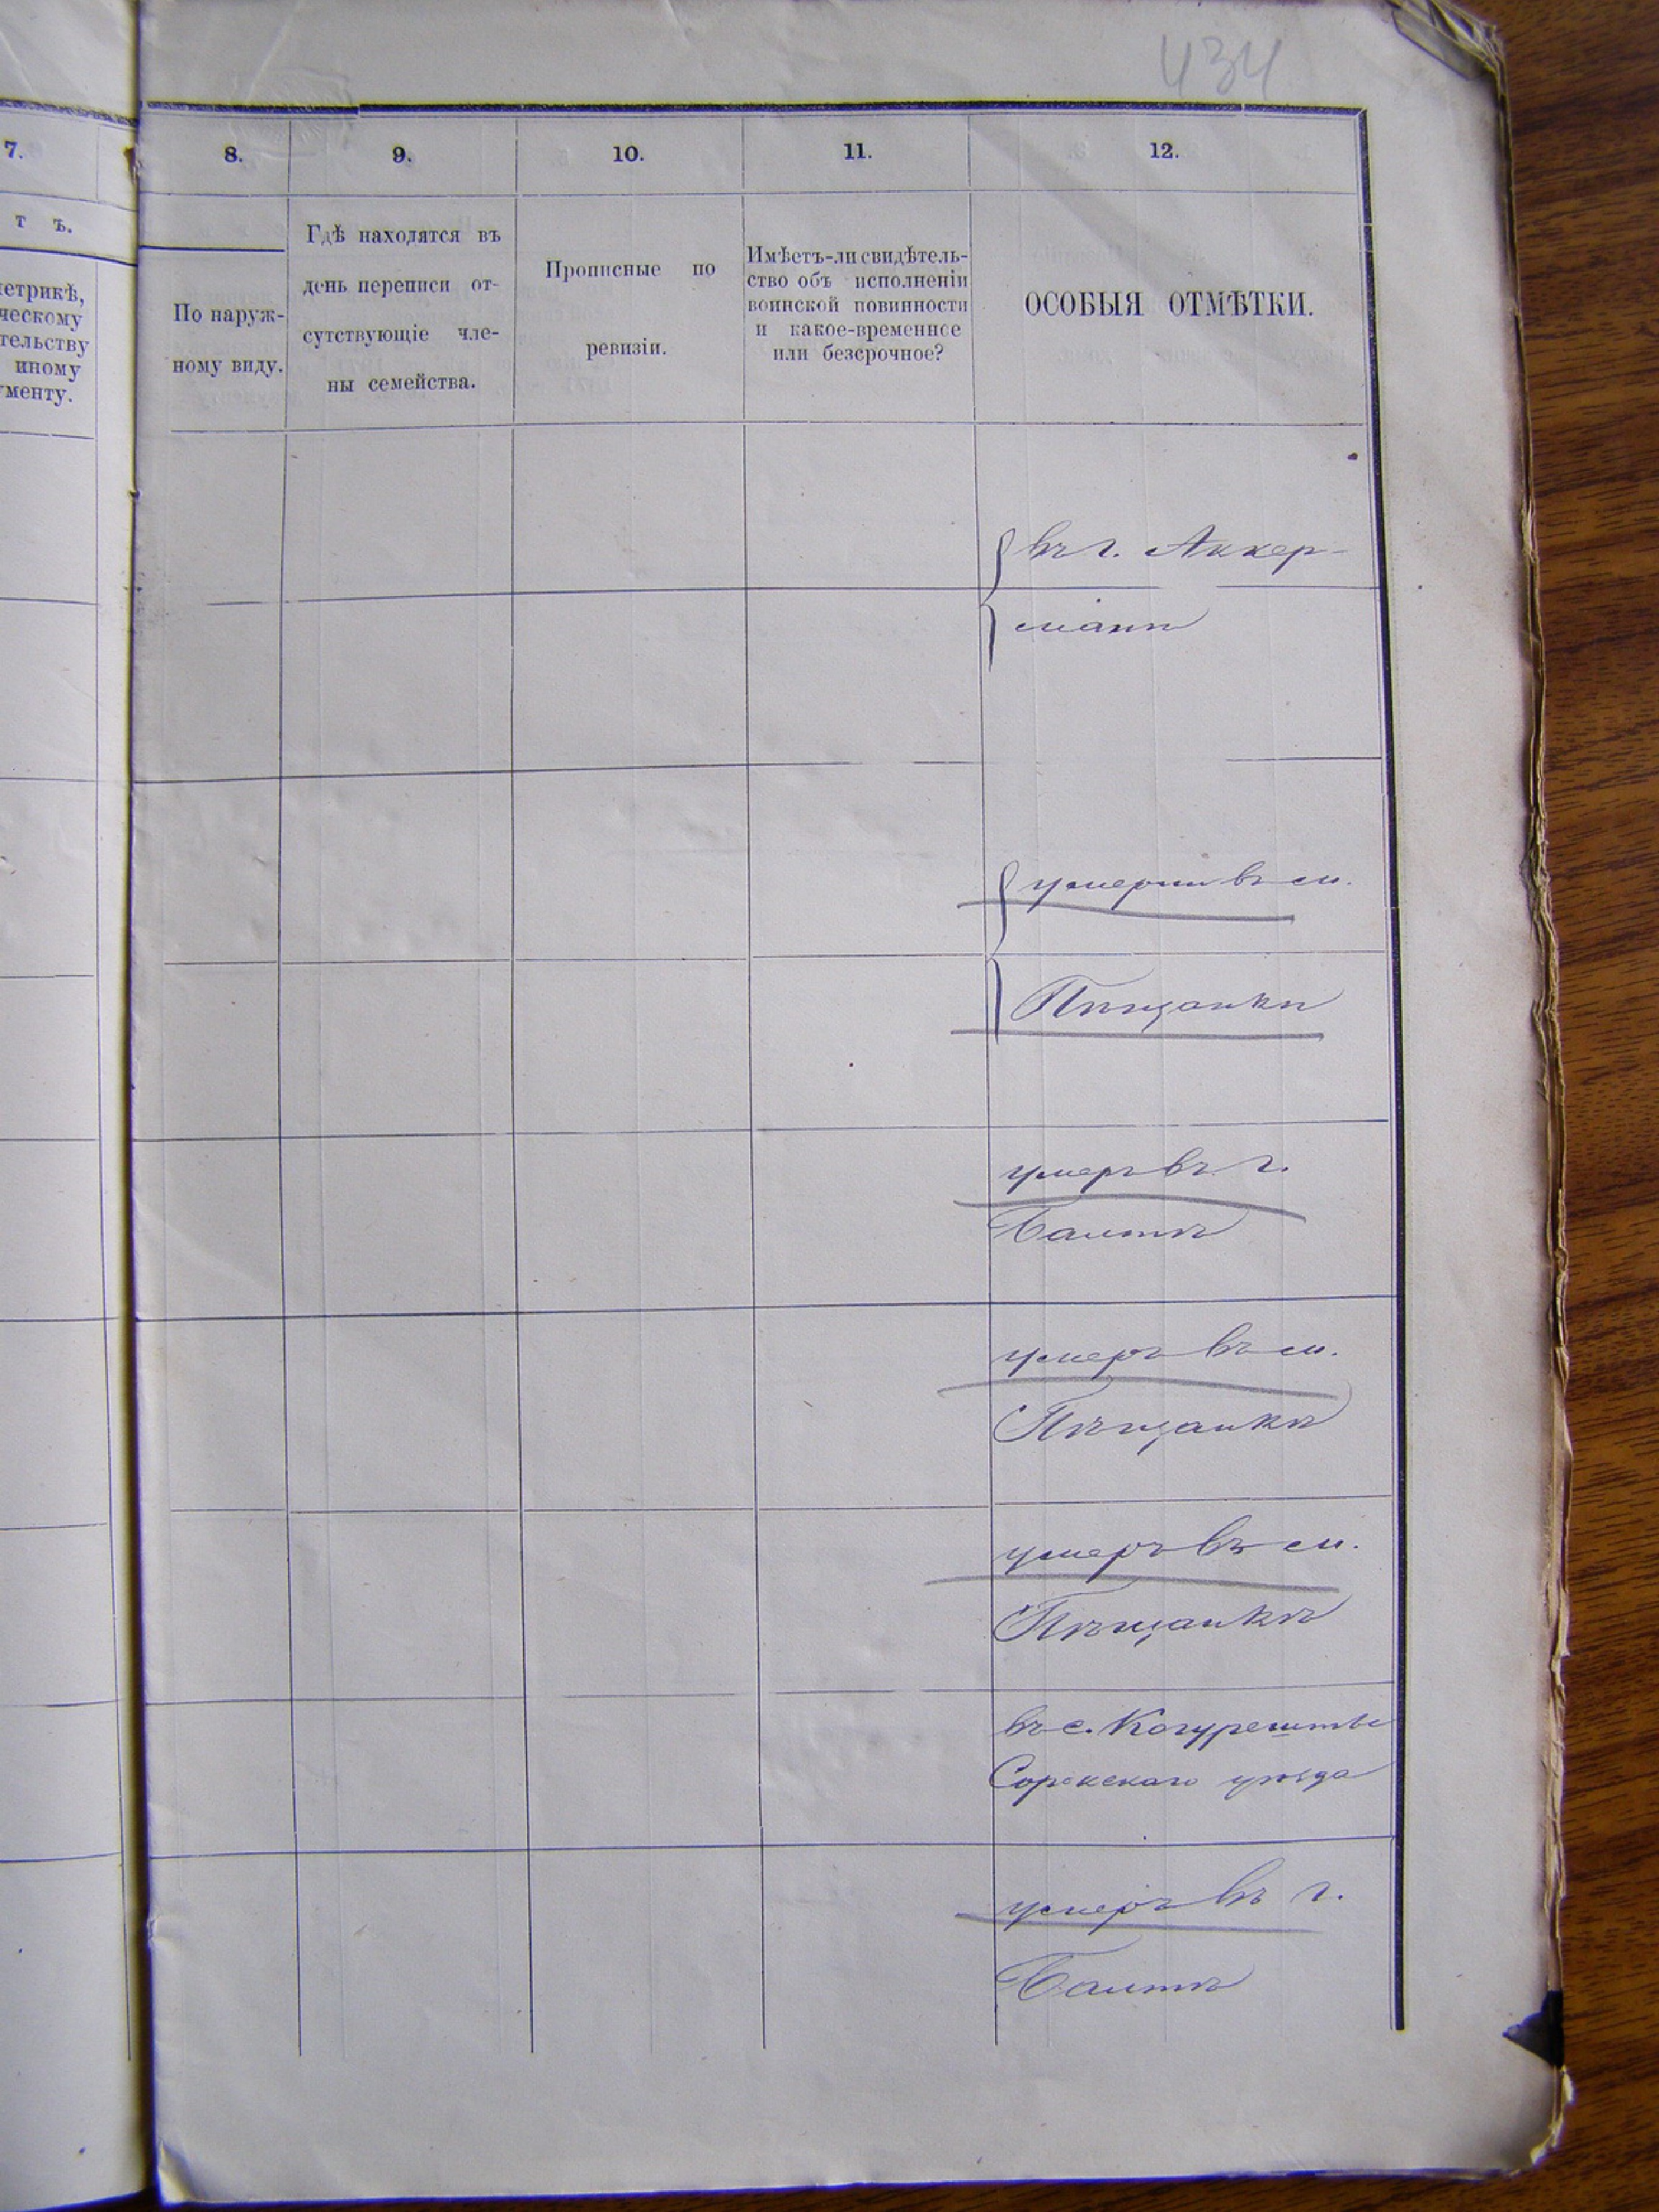 434
7.
8.
9.
10.
11.
12.
т ъ.
етрикѣ,
ческому
тельству
иному
ументу.
По наруж-
ному виду.
Гдѣ находятся въ
день переписи от-
сутствующіе чле-
ны семейства.
Прописные по
ревизіи.
Имѣетъ-ли свидѣтель-
ство объ исполненіи
воинской повинности
и какое-временное
или безсрочное?
ОСОБЫЯ ОТМѢТКИ.
въ г. Аккер-
манѣ
умерли въ м.
Пѣщанкѣ
умеръ въ г.
Балтѣ
умеръ въ м.
Пѣщанкѣ
умеръ въ м.
Пѣщанкѣ
въ с. Когурешты
Сорокскаго уѣзда
умеръ въ г.
Балтѣ